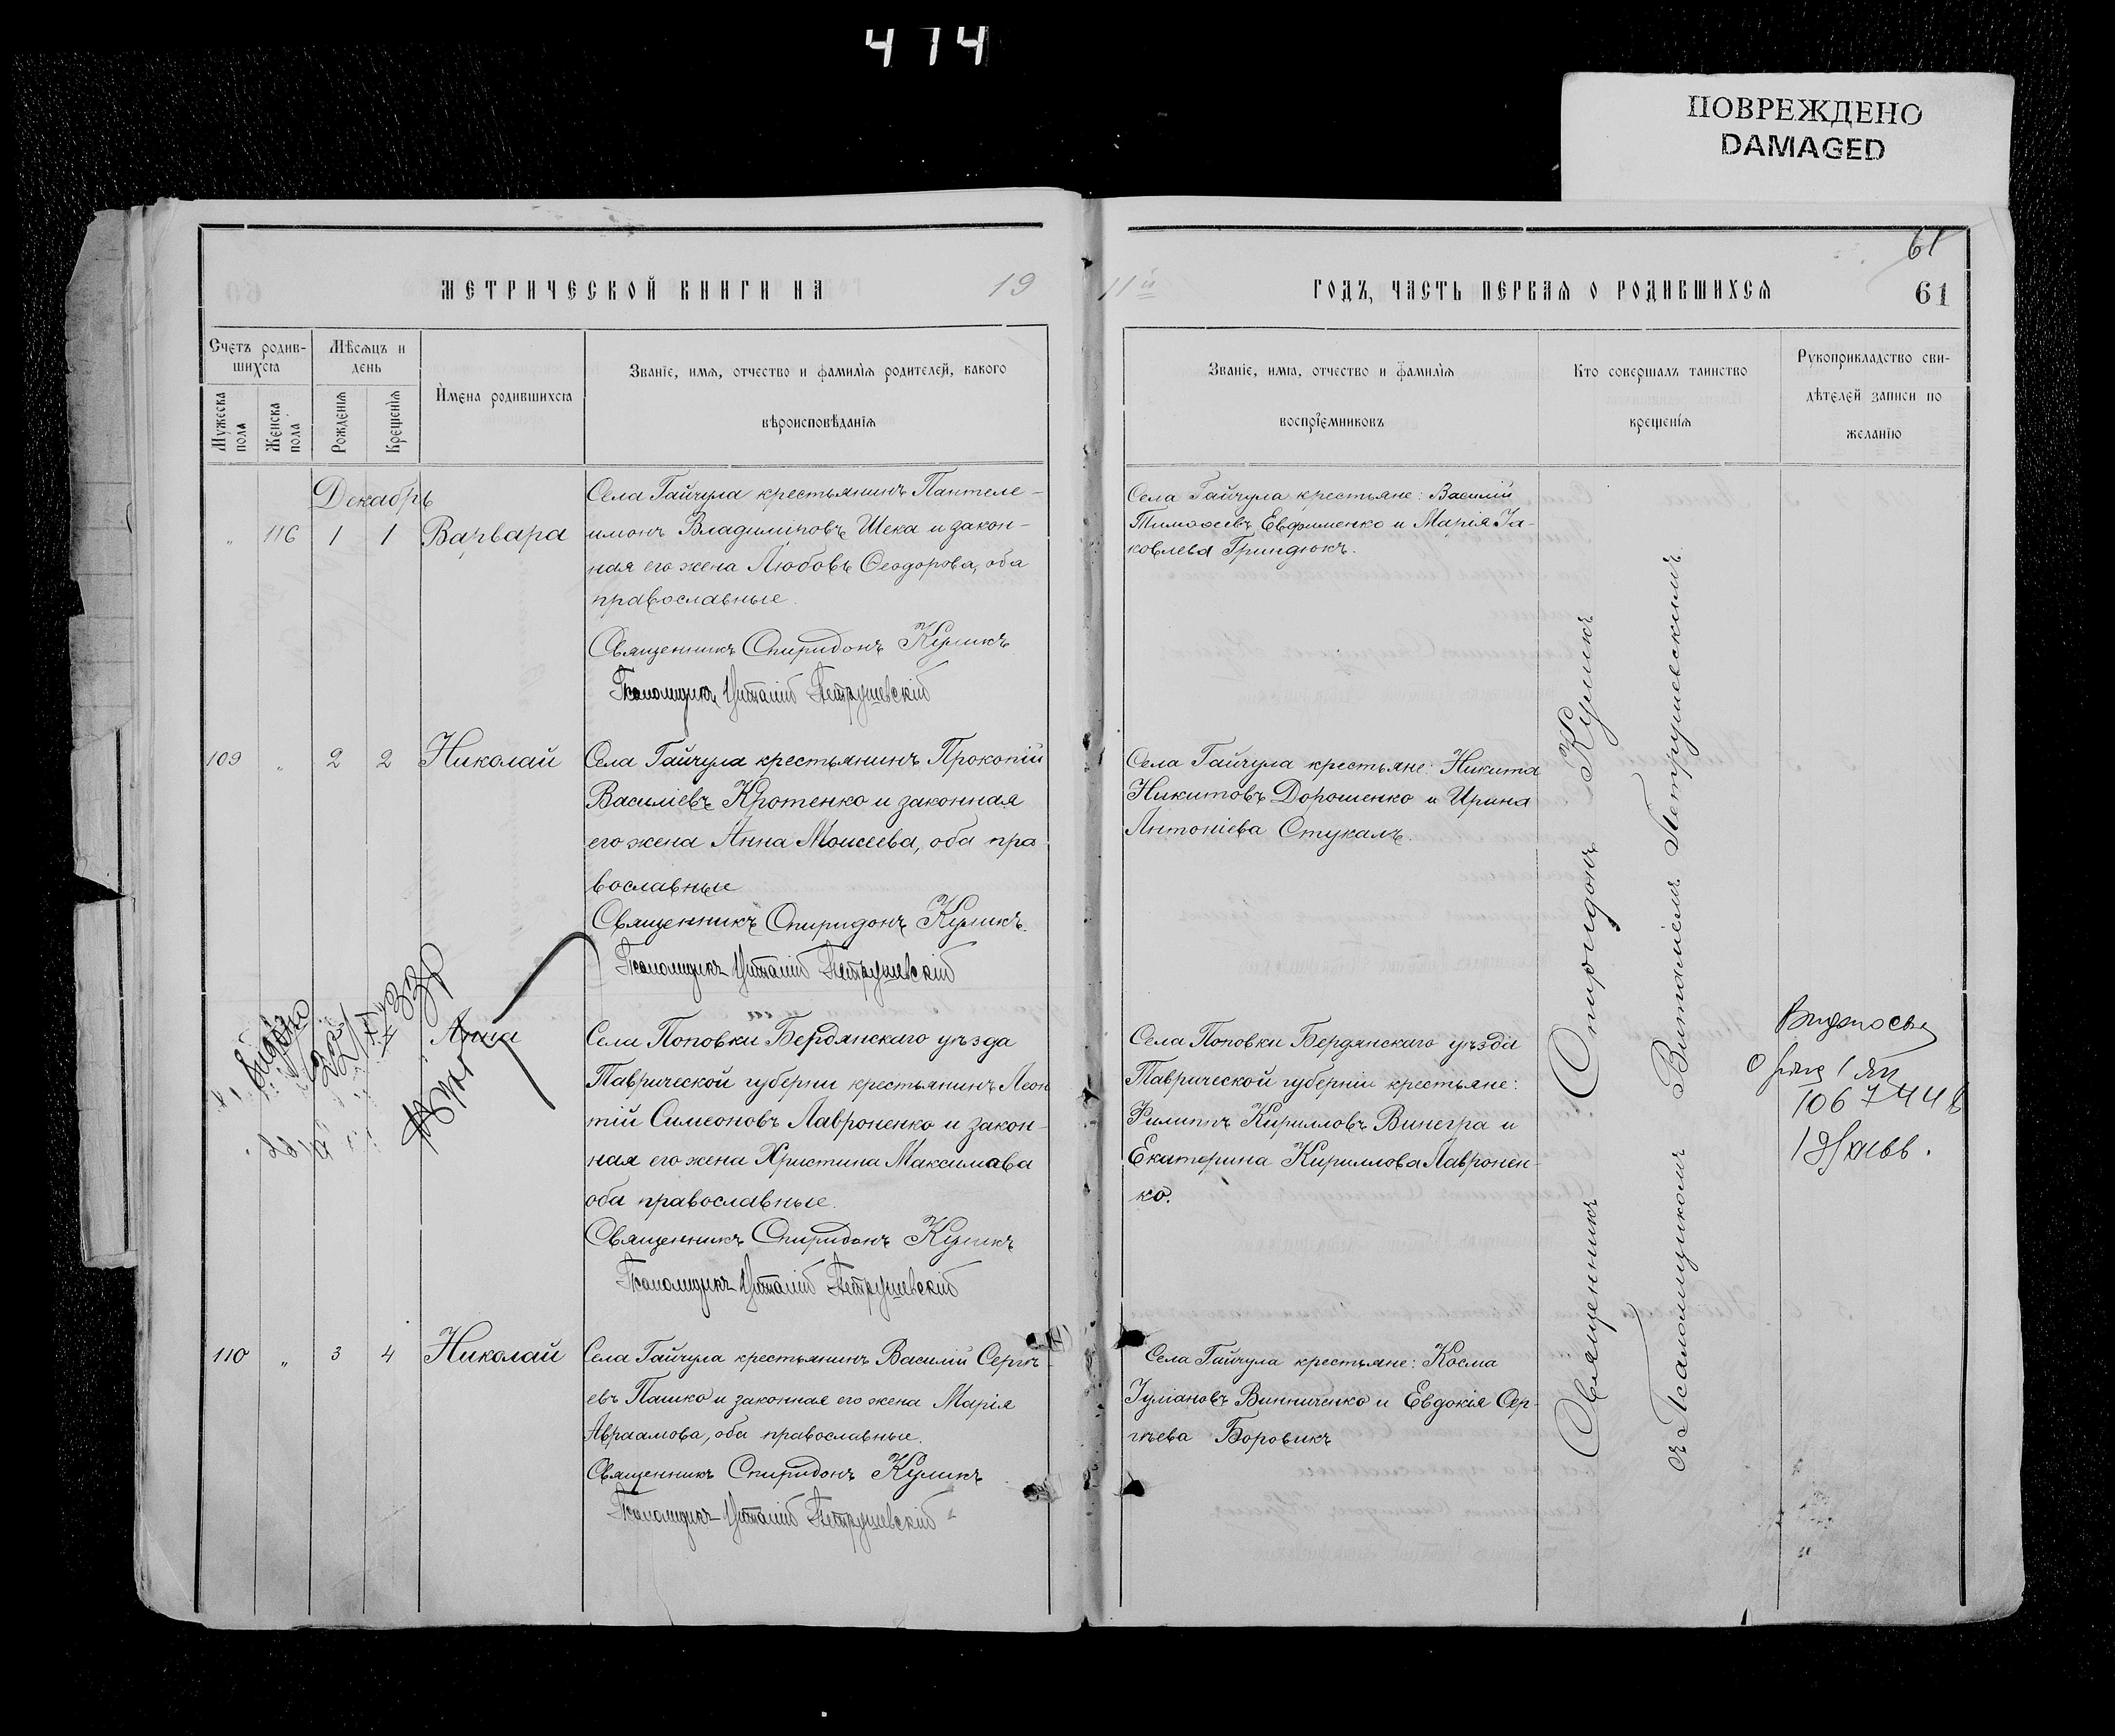 474
ПОВРЕЖДЕНО
DAMAGED
МЕТРИЧЕСКОЙ КНИГИ НА 19
11й ГОДЪ, ЧАСТЬ ПЕРВАЯ О РОДИВШИХСЯ
61
61
Счетъ родив-
шихся
Мужеска
пола
Женска
пола
Мѣсяцъ и
день
Рожденія
Крещенія
Имена родившихся
Званіе, имя, отчество и фамилія родителей, какого
вѣроисповѣданія
Званіе, имя, отчество и фамилія
воспріемниковъ
Кто совершалъ таинство
крещенія
Рукоприкладство сви-
дѣтелей записи по
желанію
Декабрь
„ 116 1 1 Варвара
Села Гайчула крестьянинъ Пантеле-
имонъ Владиміровъ Шека и закон-
ная его жена Любовь Ѳеодорова, оба
православные.
Священникъ Спиридонъ Куликъ
Псаломщикъ Виталій Петрушевскій
Села Гайчула крестьяне: Василій
Тимоѳеевъ Евфименко и Марія Іа-
ковлева Гриндюкъ.
109 „ 2 2 Николай
Села Гайчула крестьянинъ Прокопій
Василіевъ Кротенко и законная
его жена Анна Моисеева, оба пра
вославные
Священникъ Спиридонъ Куликъ.
Псаломщикъ Виталій Петрушевскій
Села Гайчула крестьяне: Никита
Никитовъ Дорошенко и Ирина
Антоніева Стукалъ.
Анна
Села Поповки Бердянскаго уѣзда
Таврической губерніи крестьянинъ Леон
тій Симеоновъ Лавроненко и закон-
ная его жена Христина Максимова
оба православные.
Священникъ Спиридонъ Куликъ
Псаломщикъ Виталій Петрушевскій
Села Поповки Бердянскаго уѣзда
Таврической губерніи крестьяне:
Филиппъ Кирилловъ Винегра и
Екатерина Кириллова Лавронен-
ко.
110 „ 3 4 Николай
Села Гайчула крестьянинъ Василій Сергѣ-
евъ Пашко и законная его жена Марія
Авраамова, оба православные.
Священникъ Спиридонъ Куликъ
Псаломщикъ Виталій Петрушевскій
Села Гайчула крестьяне: Косма
Іуліановъ Винниченко и Евдокія Сер-
гѣева Боровикъ
Священникъ Спиридонъ Куликъ
съ Псаломщикомъ Виталіемъ Петрушевскимъ